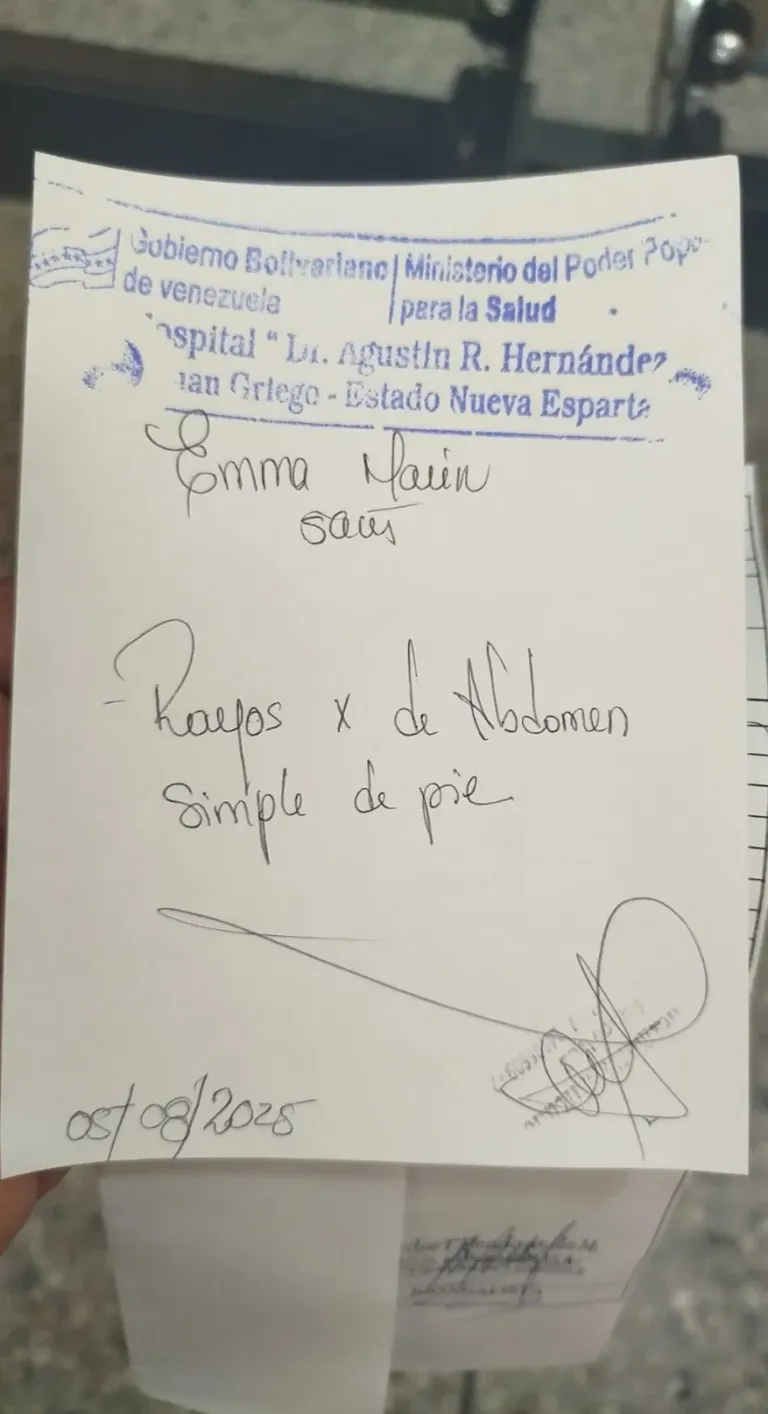 Gobierno Bolivariano | Ministerio del Poder Popu
de venezuela | para la Salud
ospital "Dr. Agustin R. Hernández
uan Griego - Estado Nueva Esparta
Emma Marin
- Rayos x de Abdomen
simple de pie
05/08/2025